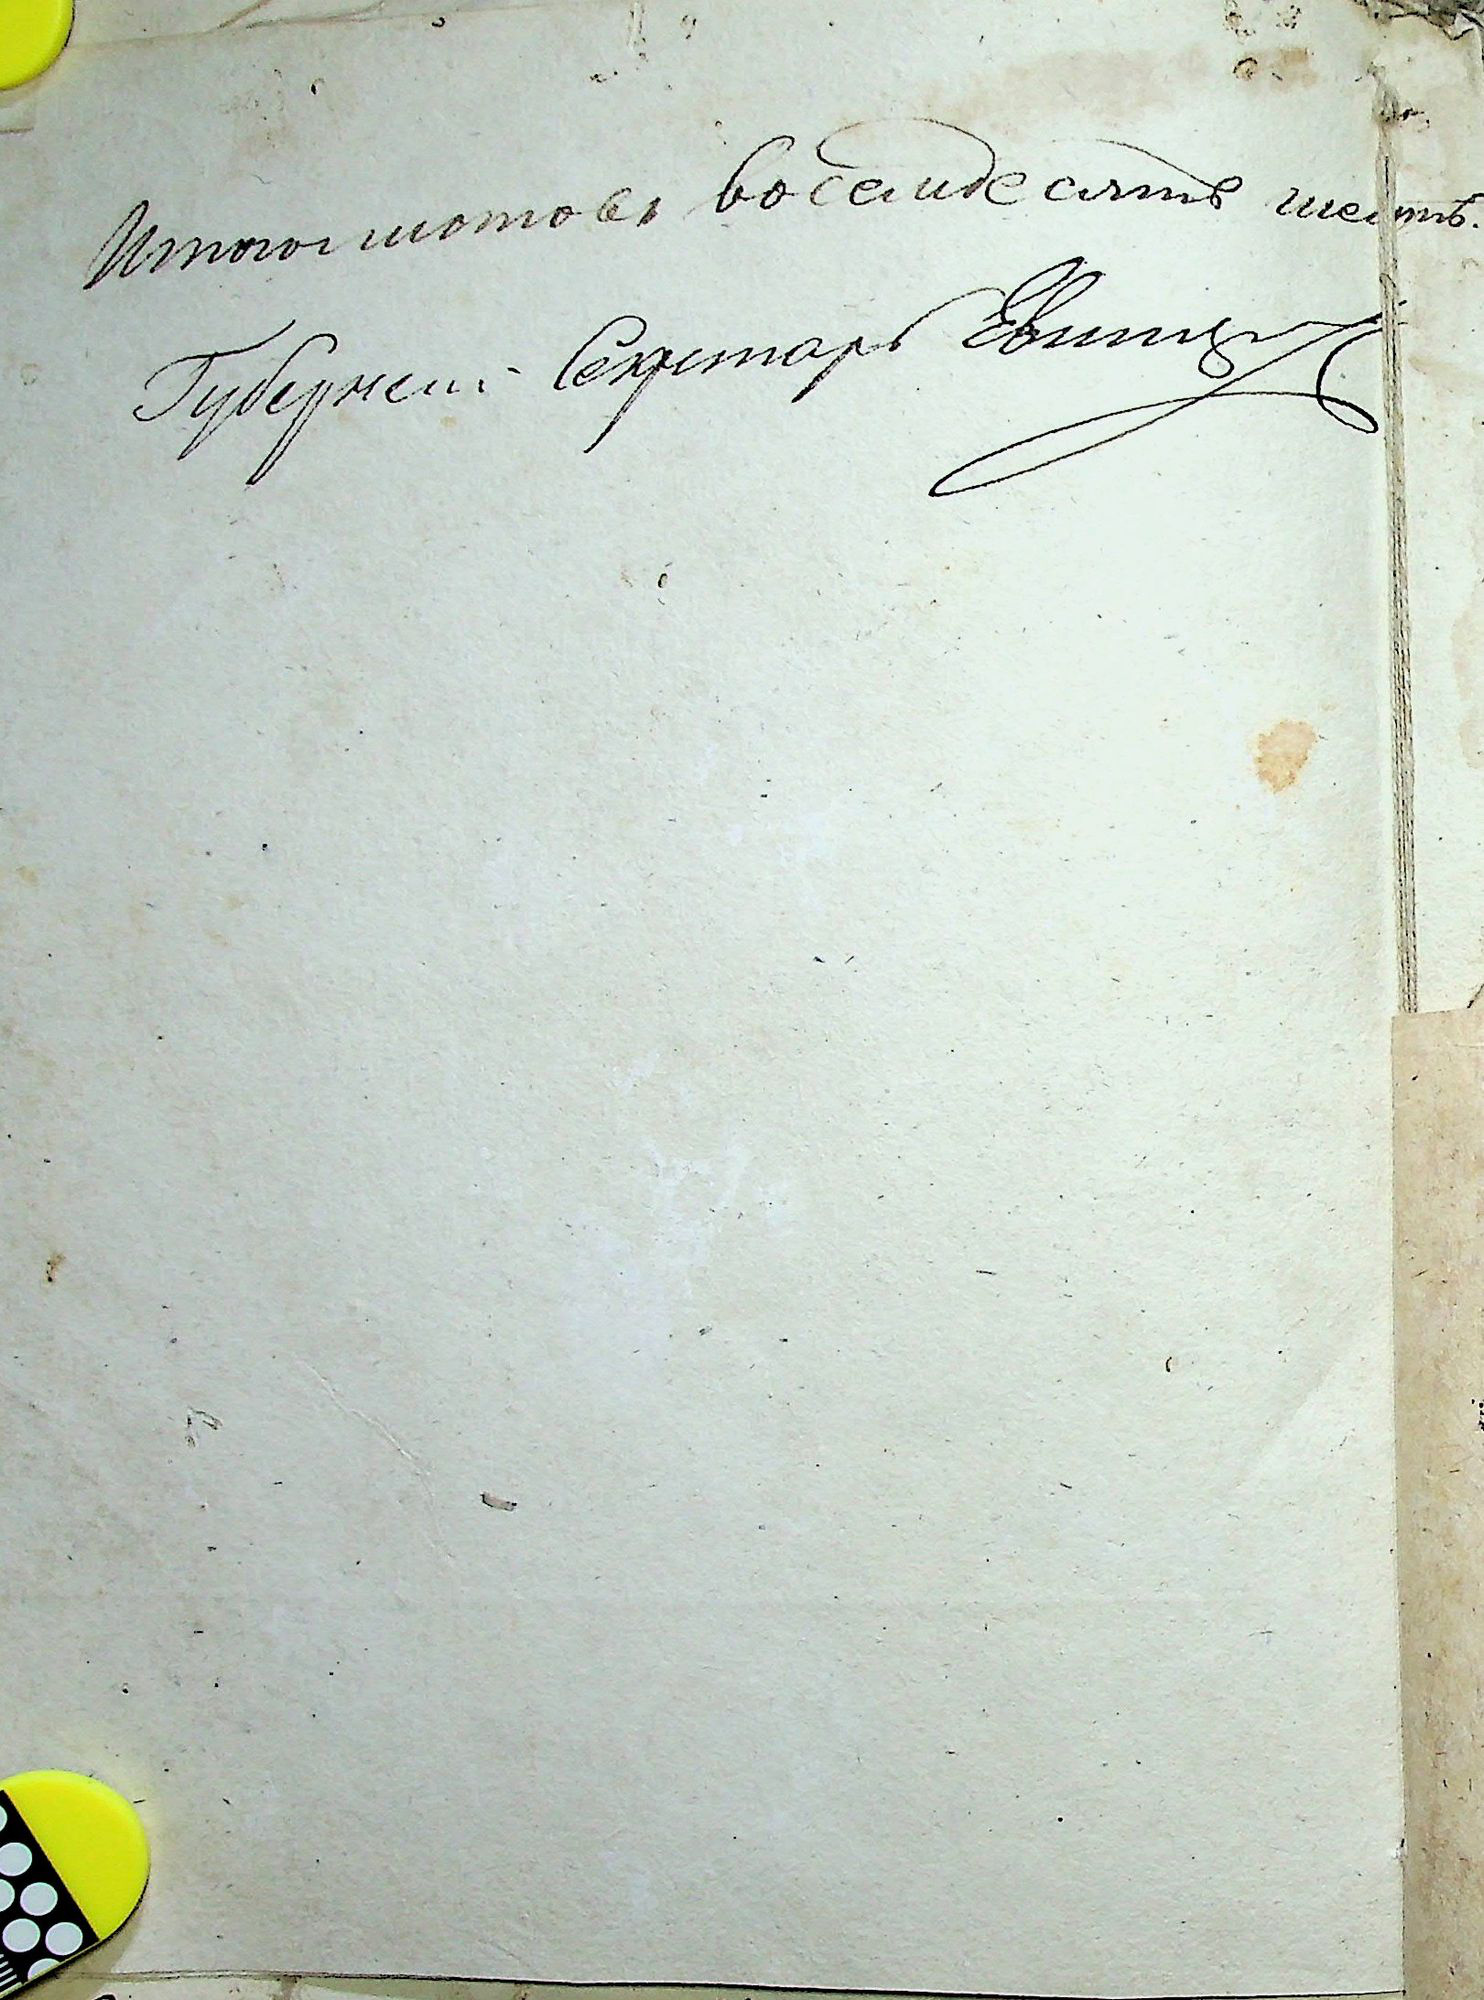 Итого листовъ восемдесятъ шесть.
Губернскі Секретарь